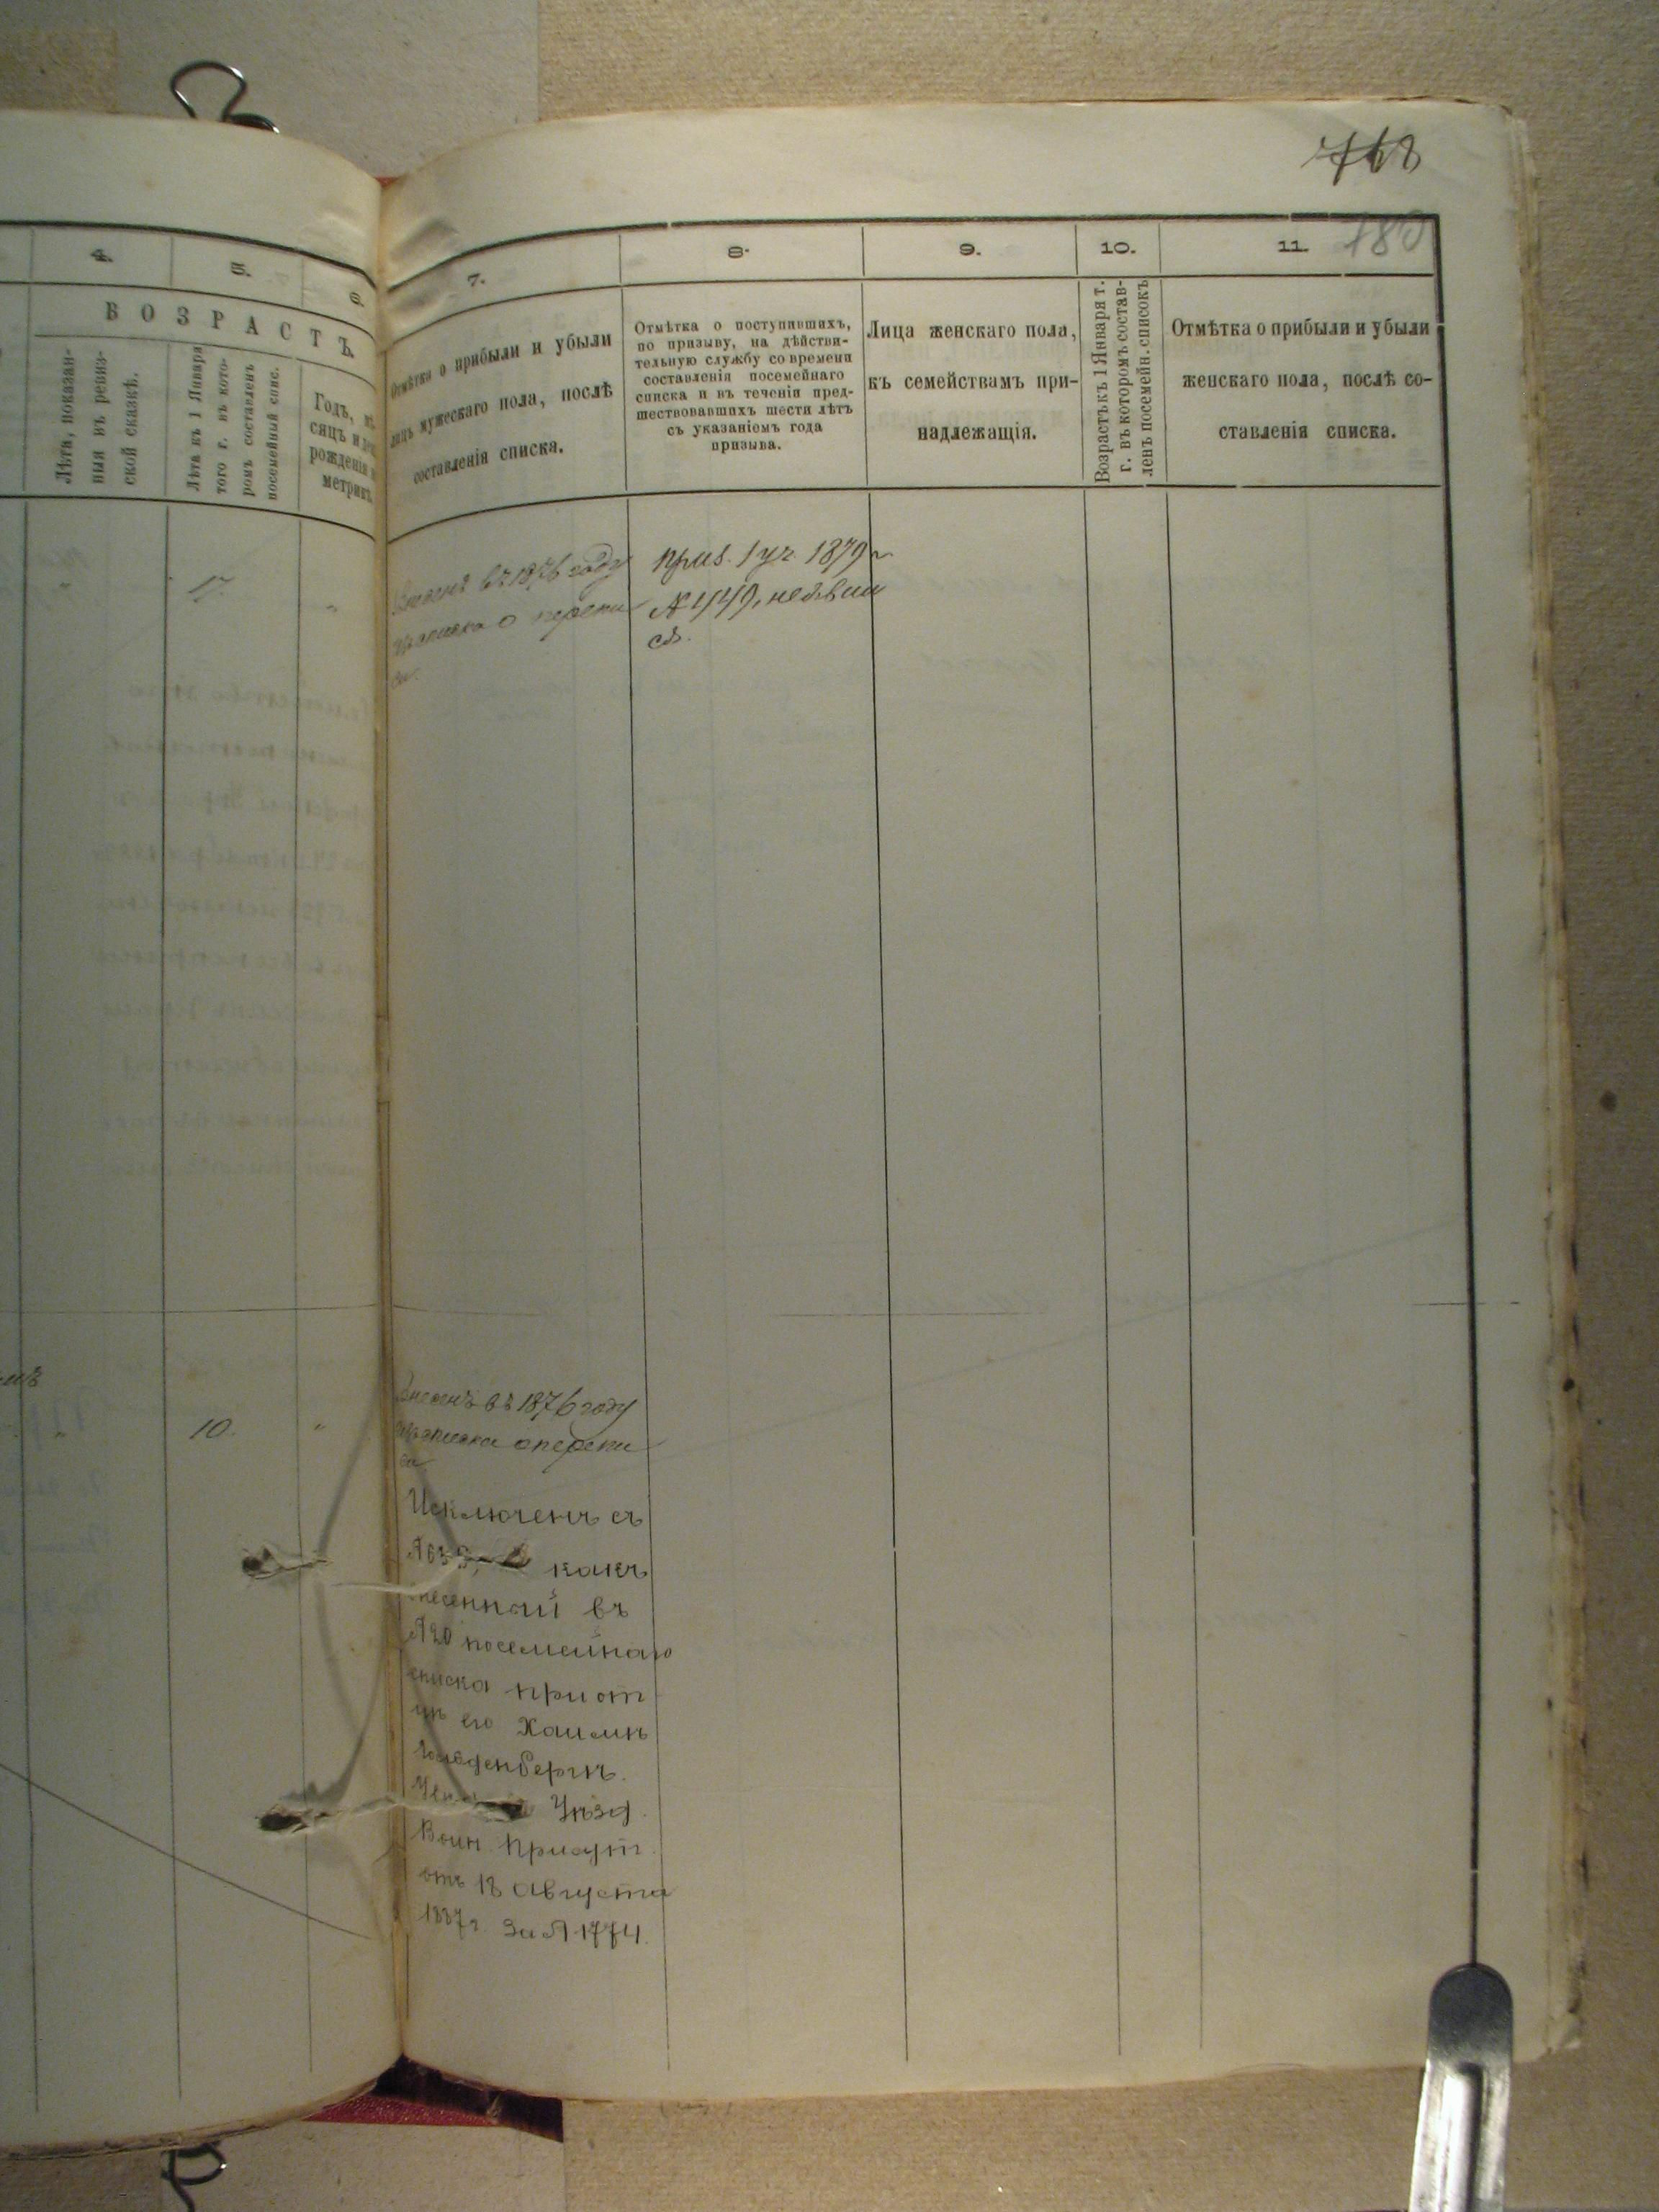 768
180
4.
5.
6.
7.
8.
9.
10.
11.
ВОЗРАСТЪ
Лѣта, показан-
ныя въ ревиз-
ской сказкѣ.
Лѣта къ 1 Января
того г. въ кото-
ромъ составленъ
посемейный спис.
Годъ, мѣ-
сяцъ и
рожденія
метрик.
Отмѣтка о прибыли и убыли
лицъ мужескаго пола, послѣ
составленія списка.
Отмѣтка о поступившихъ,
по призыву, на дѣйстви-
тельную службу со времени
составленія посемейнаго
списка и въ теченіи пред-
шествовавшихъ шести лѣтъ
съ указаніемъ года
призыва.
Лица женскаго пола,
къ семействамъ при-
надлежащія.
Возрастъ къ 1 Января т.
г. въ которомъ состав-
ленъ посемейн. списокъ
Отмѣтка о прибыли и убыли
женскаго пола, послѣ со-
ставленія списка.
17.
Внесенъ въ 1876 году
изъ списка о перепи
си.
приз. 1 уч. 1879 г
№ 449, неявил
ся.
10.
Внесенъ въ 1876 году
изъ списка о перепи
си
Исключенъ съ
какъ
внесенный въ
№20 посемейнаго
списка при от
цѣ его Хаимѣ
Гольденбергѣ.
Уѣзд.
Воин. Присут.
отъ 18 Августа
1887 г. за № 1774.